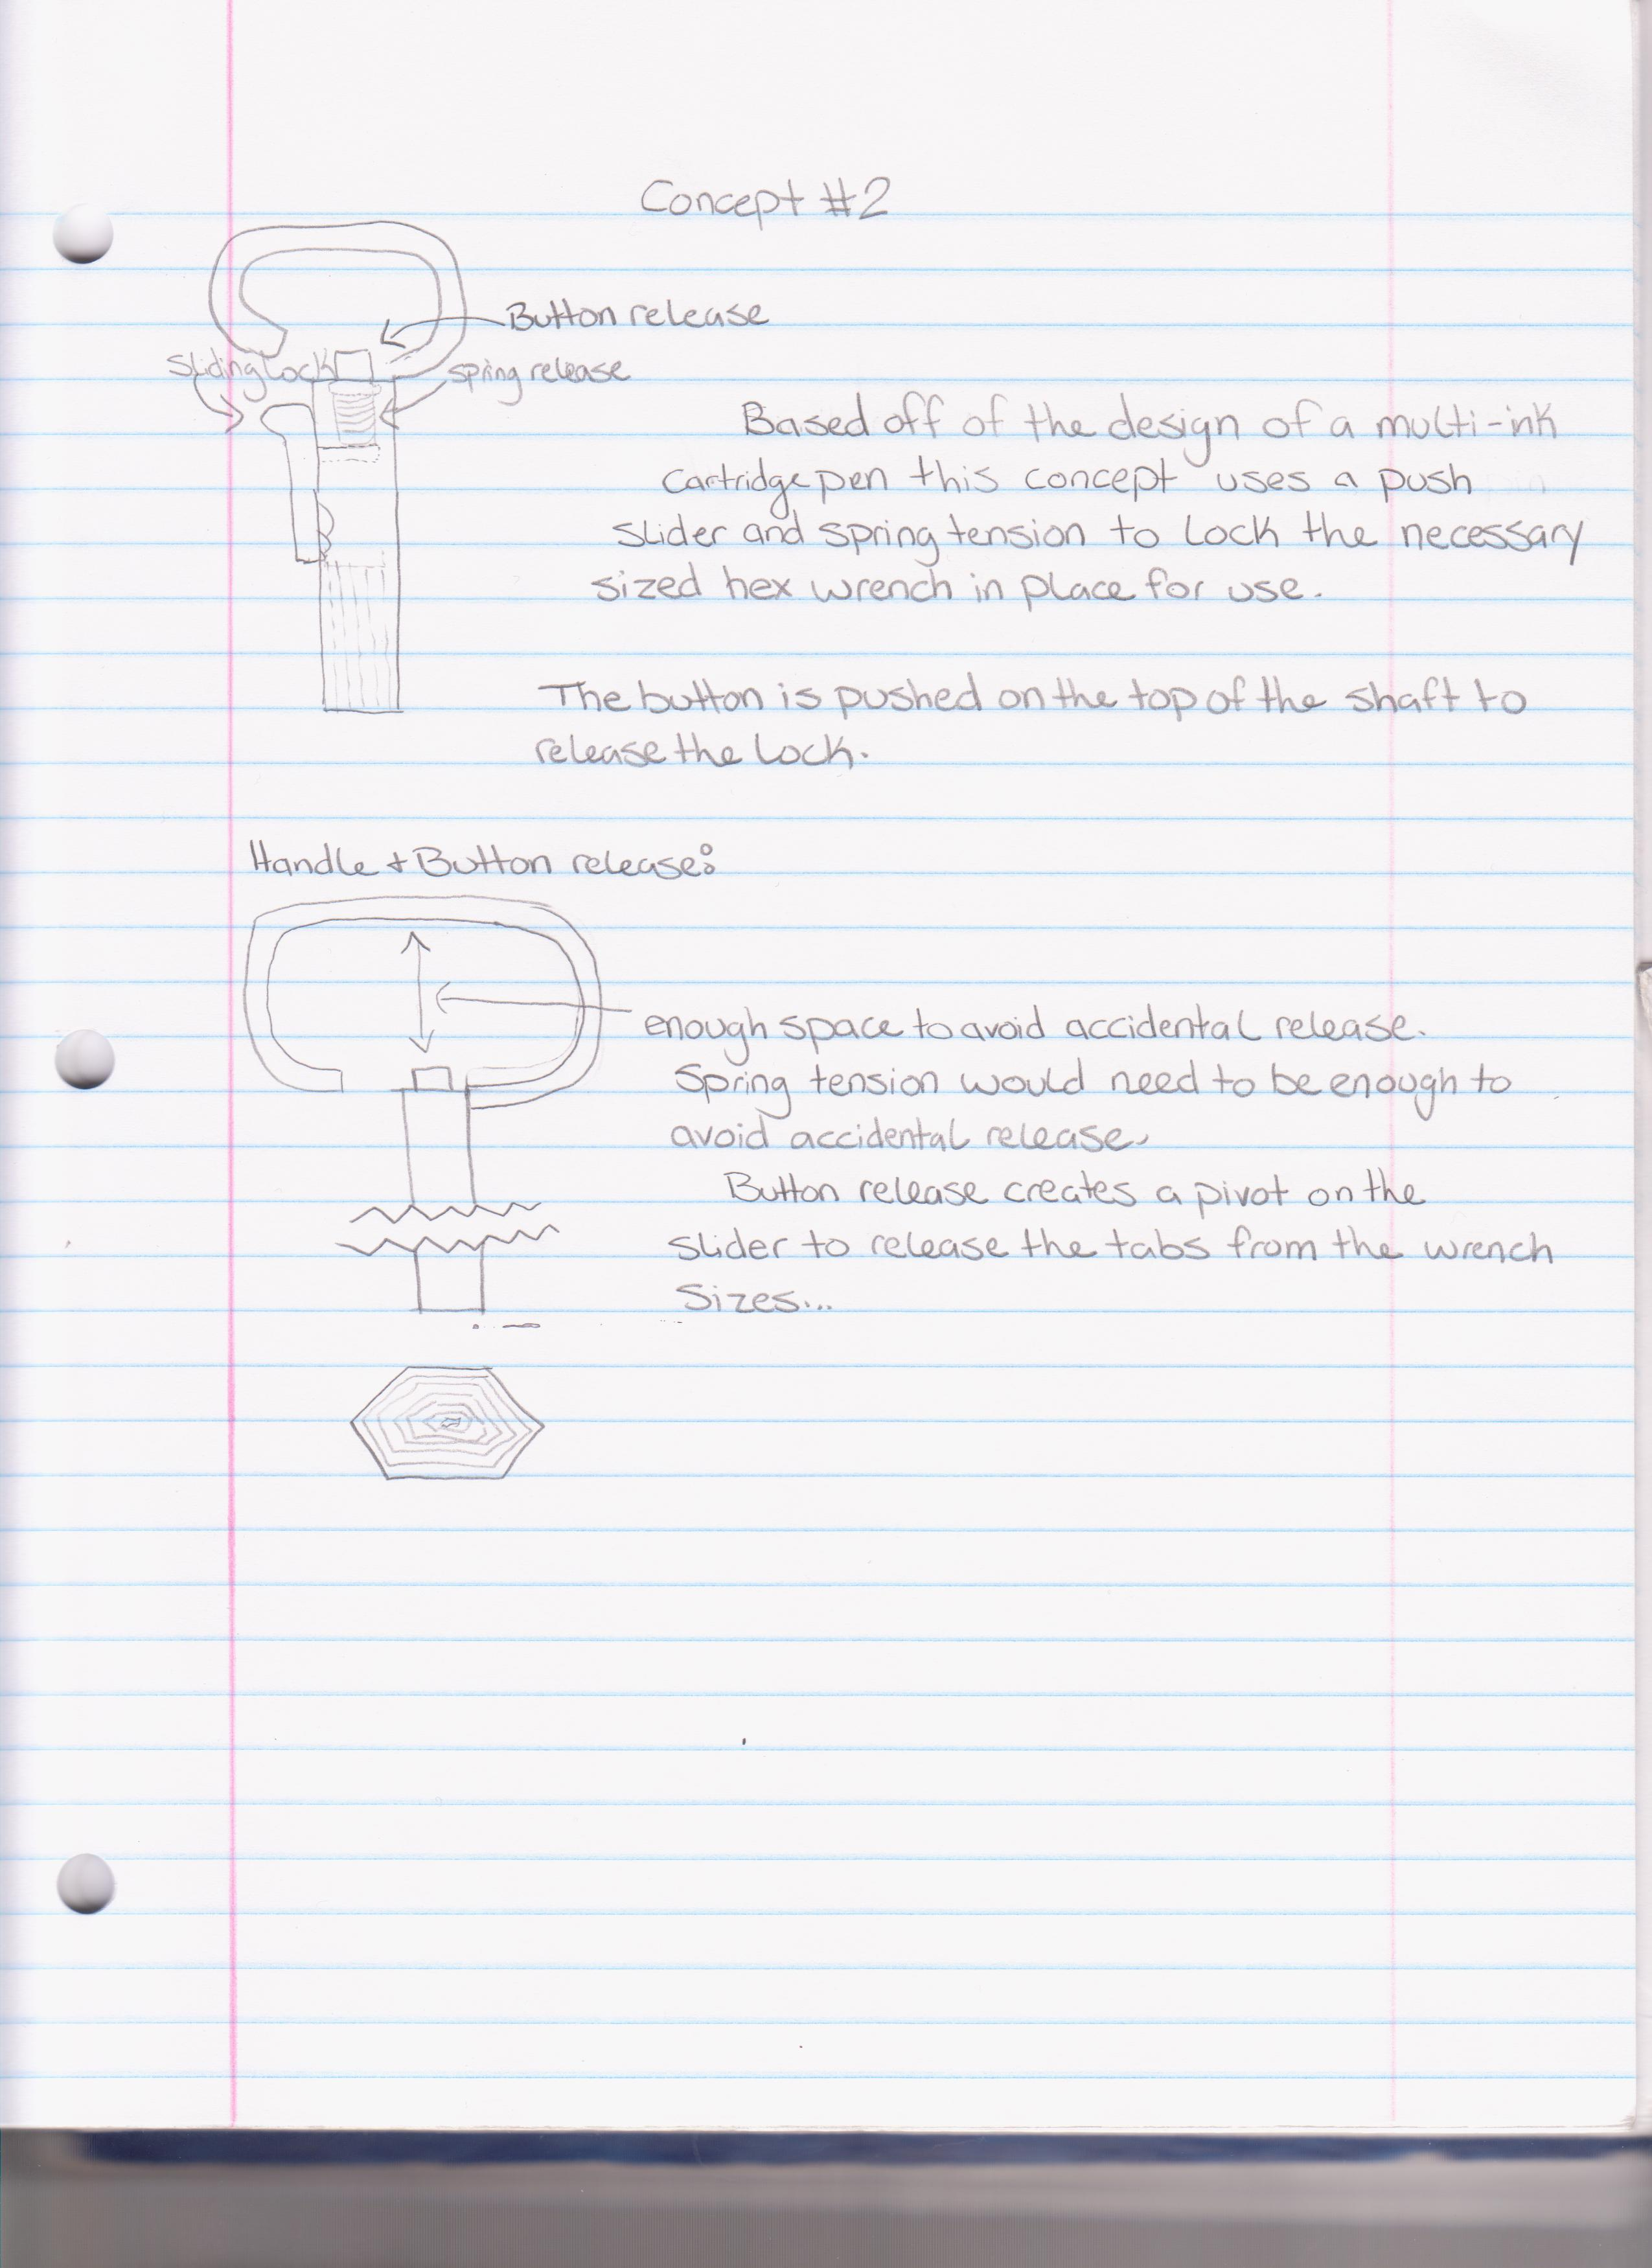 Concept #2
Button release
Sliding Lock
spring release
Based off of the design of a multi-ink
Cartridge pen this concept uses a push
slider and spring tension to lock the necessary
sized hex wrench in place for use.
The button is pushed on the top of the shaft to
release the lock.
Handle + Button release:
enough space to avoid accidental release.
Spring tension would need to be enough to
avoid accidental release.
Button release creates a pivot on the
slider to release the tabs from the wrench
Sizes...